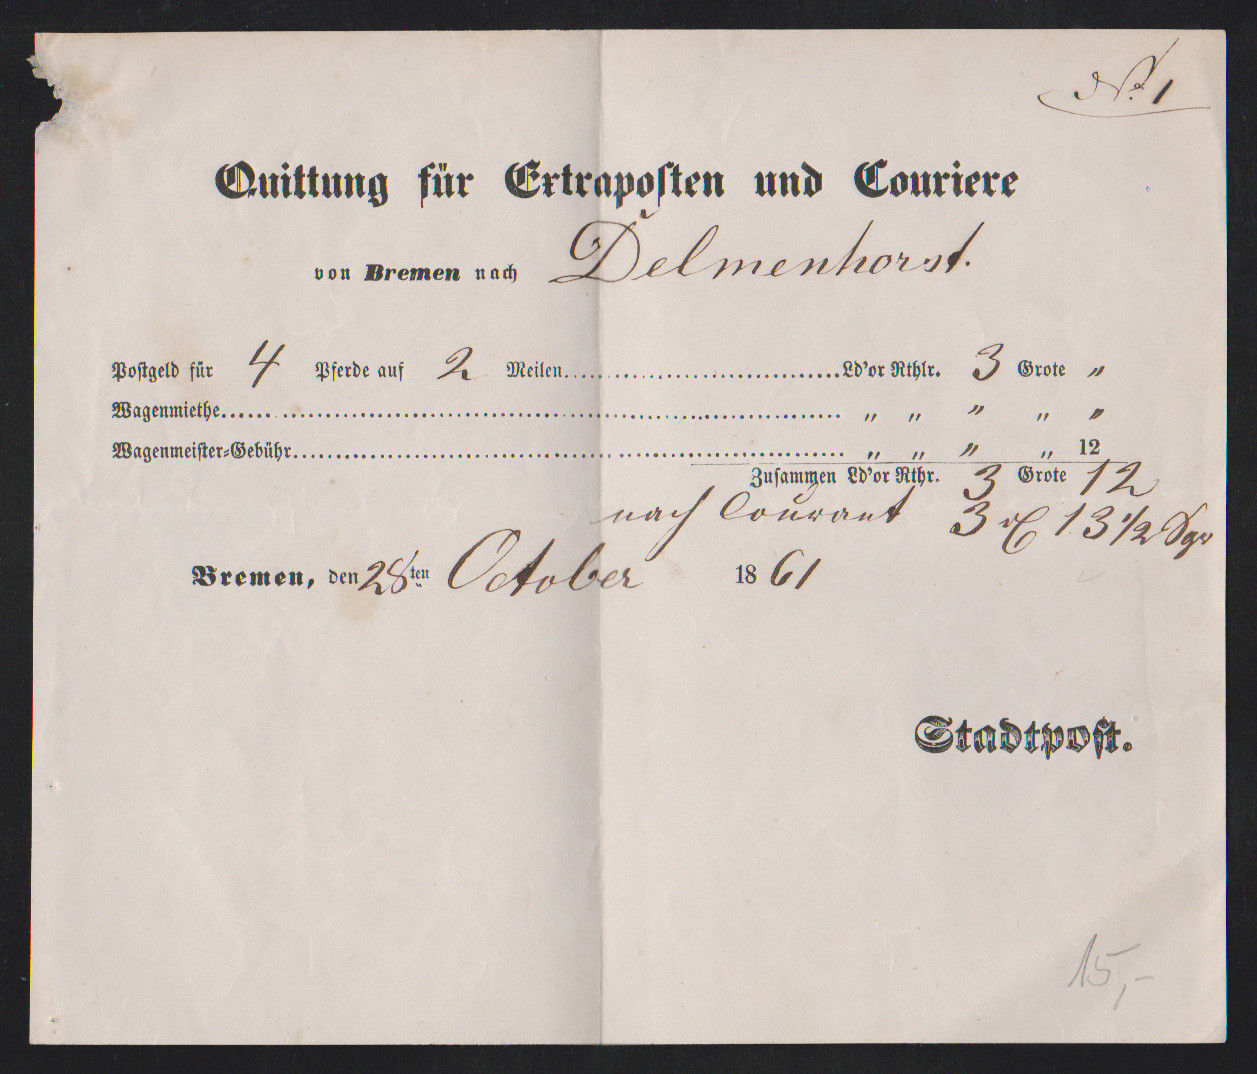 No. 1
Quittung für Extraposten und Couriere
von Bremen nach Delmenhorst.
Postgeld für 4 Pferde auf 2 Meilen........................................Ld'or Rthlr. 3 Grote „
Wagenmiethe........................................ „ „ „ „ „
Wagenmeister-Gebühr........................................ „ „ „ „ 12
Zusammen Ld'or Rthr. 3 Grote 12
nach Courant 3 rℓ 13 1/2 Sgr
Bremen, den 28ten October 1861
Stadtpost.
15,-